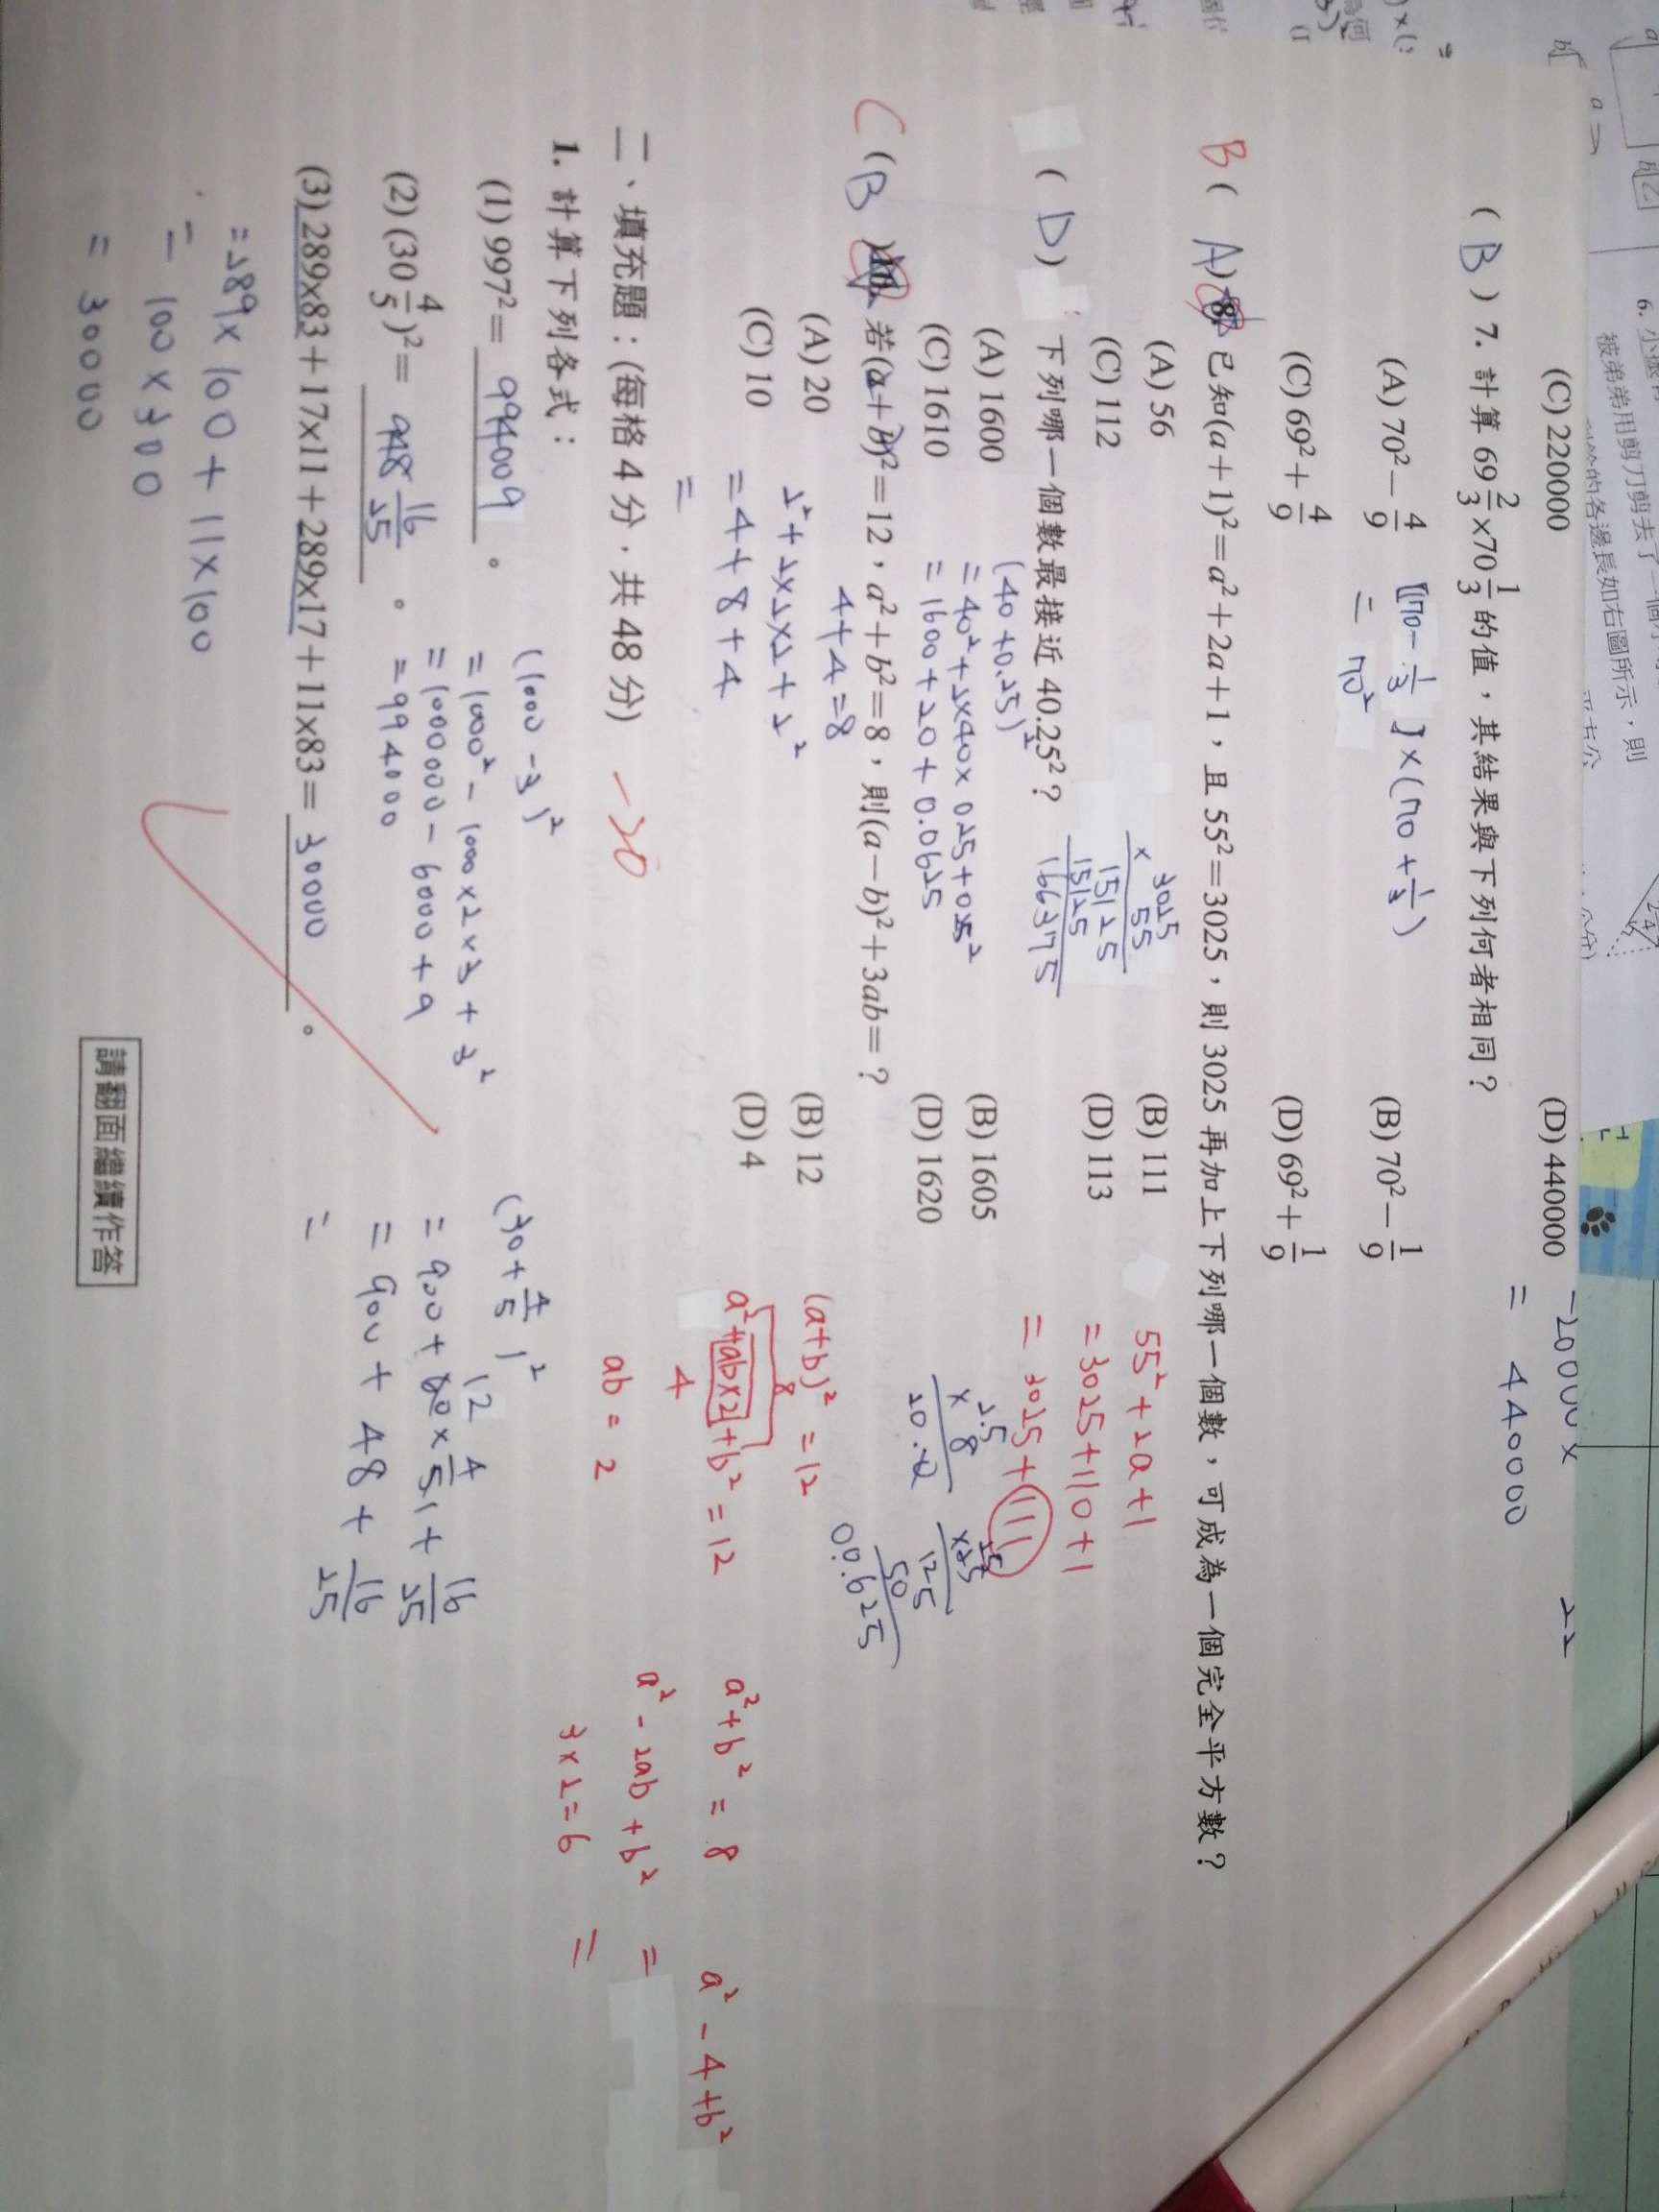 6. 小張有
被弟弟用剪刀剪去了一個小
的各邊長如右圖所示，則
(C) 220000
(D) 440000
-20000x 22
= 440000
( B ) 7. 計算 69 2/3 × 70 1/3 的值，其結果與下列何者相同？
(A) 70² − 4/9
(B) 70² − 1/9
(C) 69² + 4/9
(D) 69² + 1/9
(70 − 1/3) × (70 + 1/3)
= 70²
B ( A ) 8. 已知(a+1)²=a²+2a+1，且 55²=3025，則 3025 再加上下列哪一個數，可成為一個完全平方數？
(A) 56
(B) 111
(C) 112
(D) 113
3025
× 55
15125
15125
166375
55² + 2a + 1
= 3025 + 110 + 1
= 3025 + 111
( D ) 下列哪一個數最接近 40.25²？
(A) 1600
(B) 1605
(C) 1610
(D) 1620
(40 + 0.25)²
= 40² + 2×40× 0.25 + 0.25²
= 1600 + 20 + 0.0625
2.5
× 8
20.0
×25
125
50
00.625
C ( B ) 10. 若(a+b)²=12，a²+b²=8，則(a−b)²+3ab=？
(A) 20
(B) 12
(C) 10
(D) 4
4+4=8
2² + 2×2×2 + 2²
= 4 + 8 + 4
=
(a+b)² = 12
8
a² + ab×2 + b² = 12
4
ab = 2
a² + b² = 8
a² − 2ab + b² =
3×2=6
=
a² − 4 + b²
二、填充題：(每格 4 分，共 48 分) −20
1. 計算下列各式：
(1) 997² = 994009 。
(1000 − 3)²
= 1000² − 1000×2×3 + 3²
= 1000000 − 6000 + 9
= 994000
(2) (30 4/5)² = 948 16/25 。
(30 + 4/5)²
= 900 + 60 12 × 4/5 1 + 16/25
= 900 + 48 + 16/25
=
(3) 289×83+17×11+289×17+11×83= 30000 。
= 289×100 + 11×100
= 100 × 300
= 30000
請翻面繼續作答